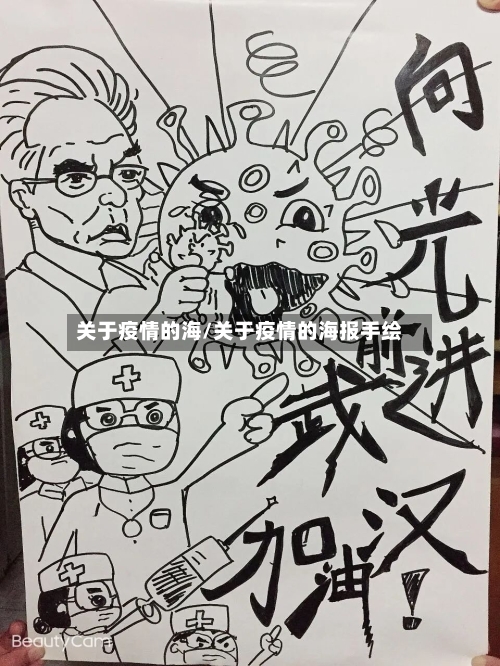 向
光
前进
武
汉
加油!
关于疫情的海/关于疫情的海报手绘
BeautyCam